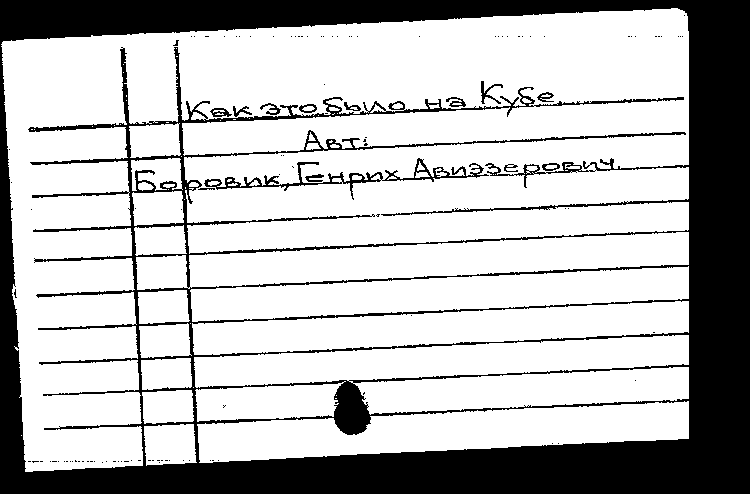 Как это было на Кубе.
Авт:
Боровик, Генрих Авиэзерович.